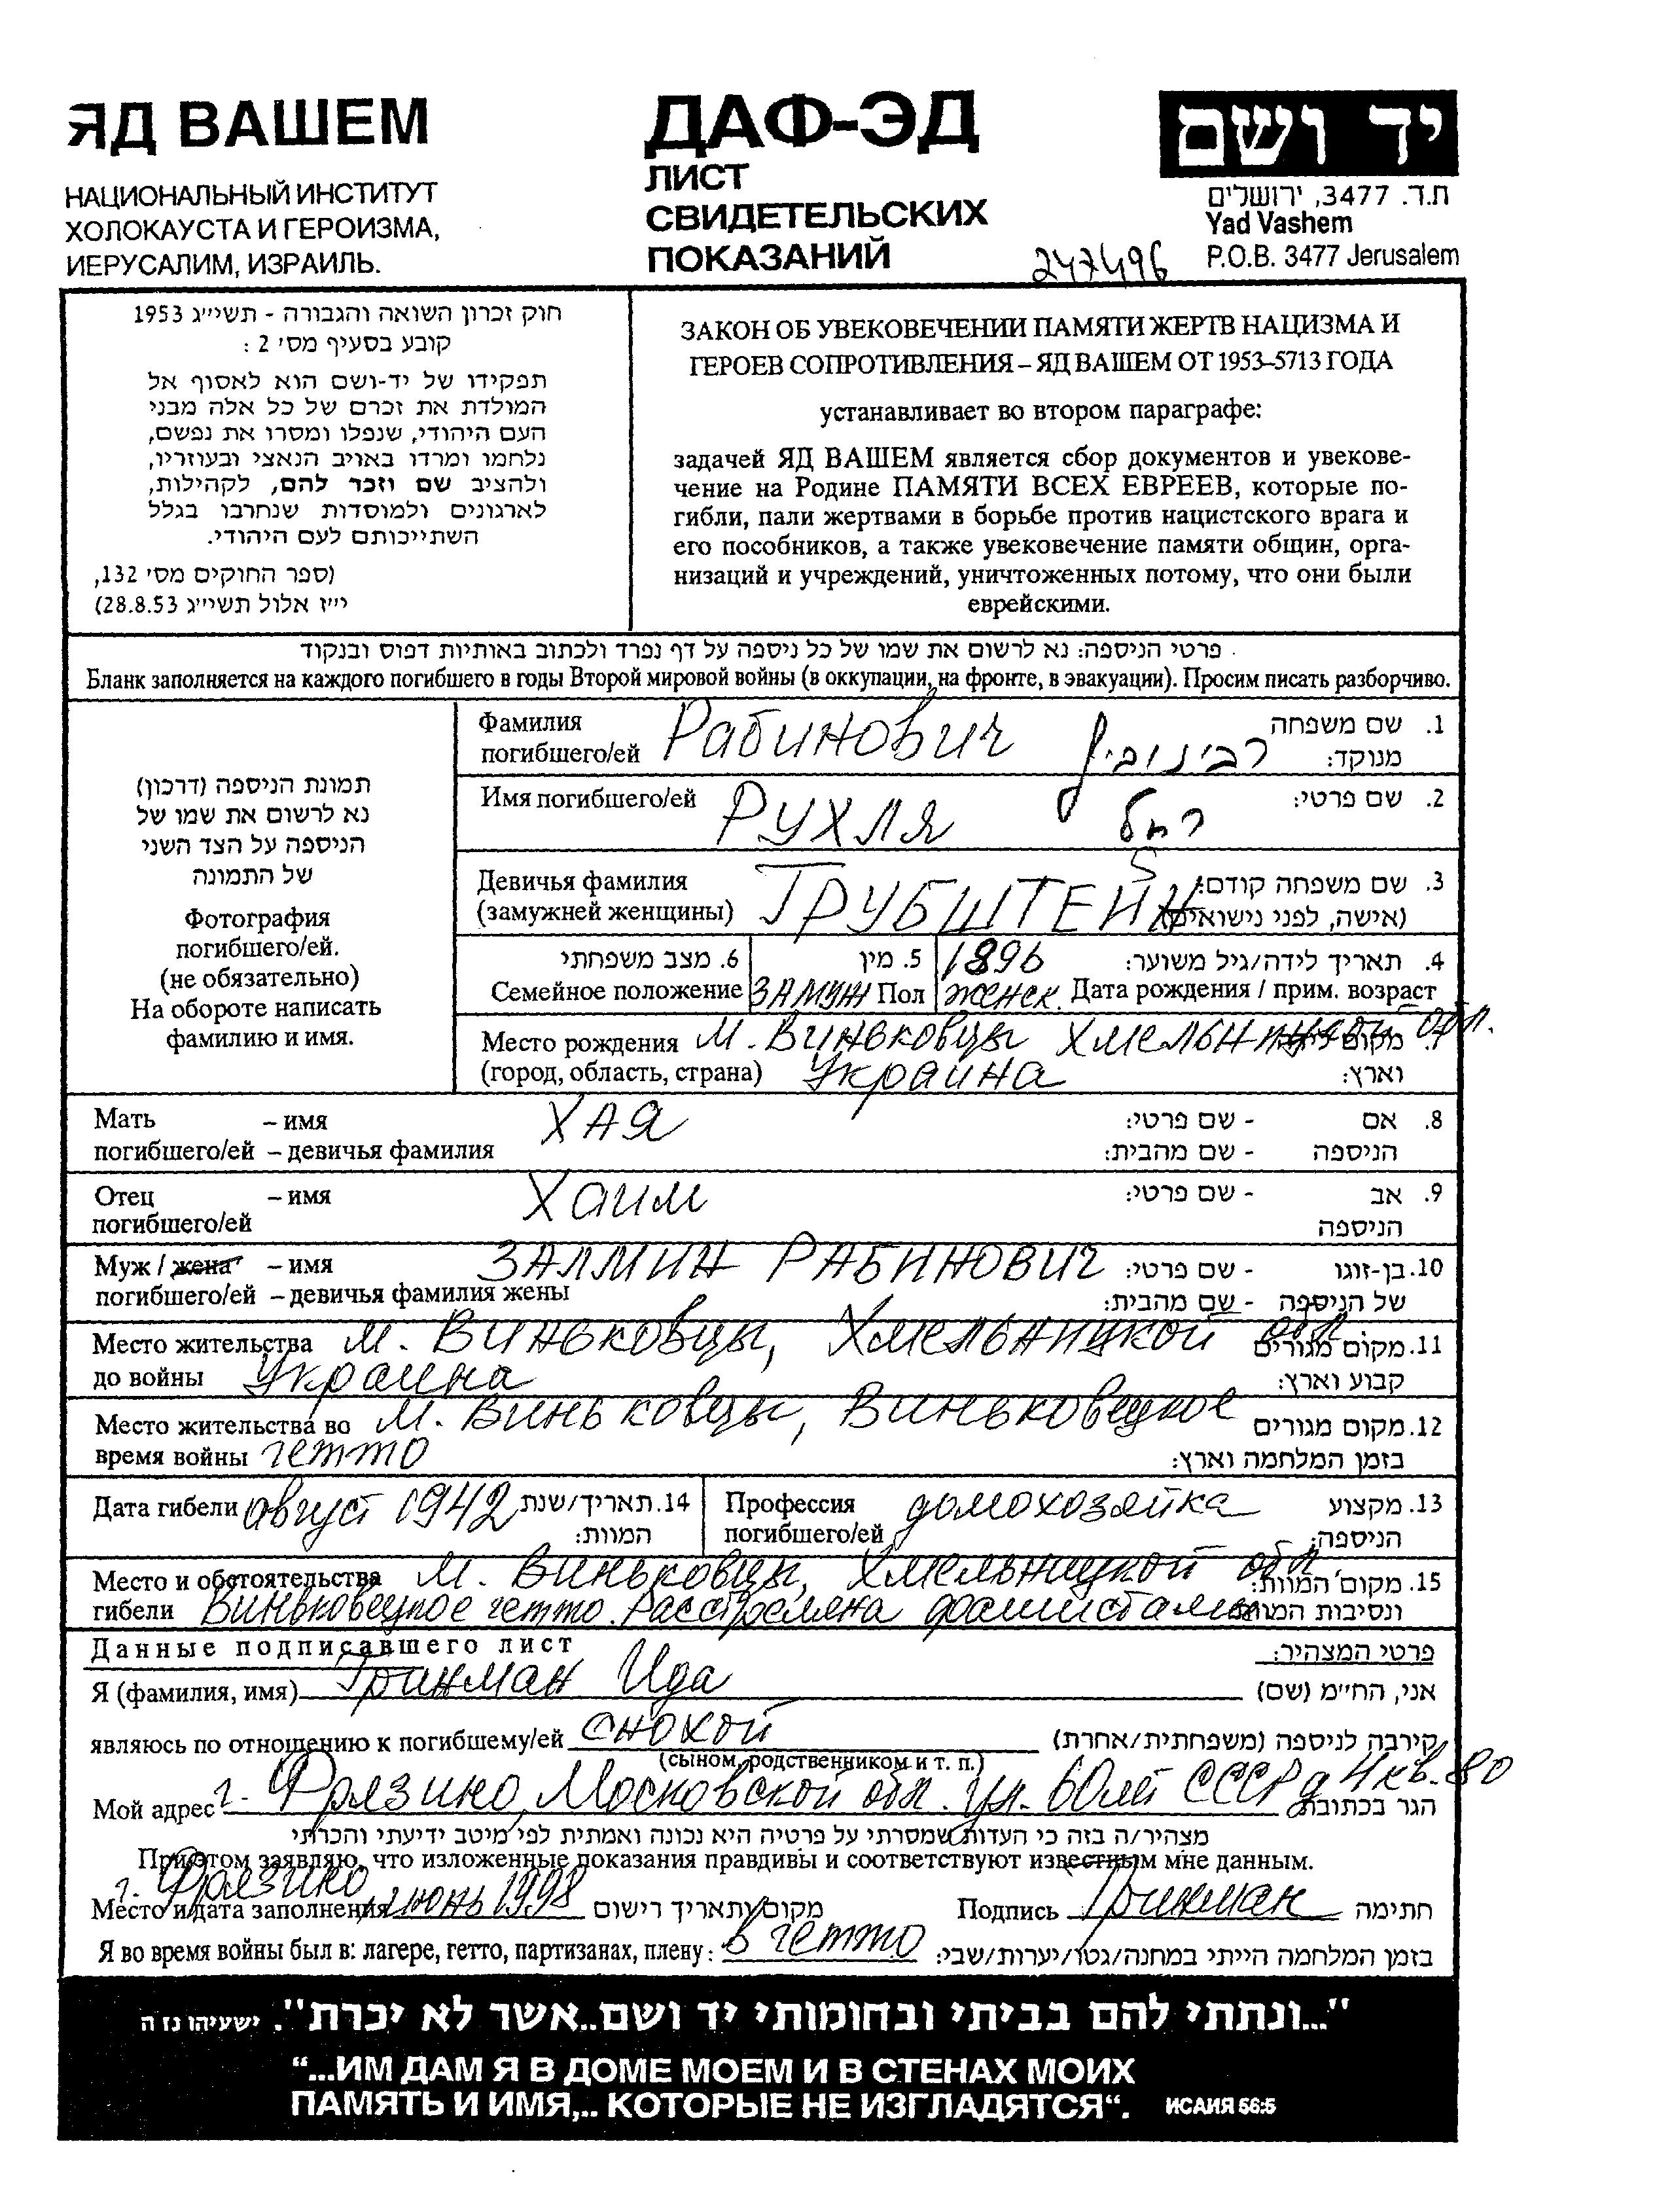 ЯД ВАШЕМ
НАЦИОНАЛЬНЫЙ ИНСТИТУТ
ХОЛОКАУСТА И ГЕРОИЗМА,
ИЕРУСАЛИМ, ИЗРАИЛЬ.
ДАФ-ЭД
ЛИСТ
СВИДЕТЕЛЬСКИХ
ПОКАЗАНИЙ
247496
יד ושם
ת.ד. 3477, ירושלים
Yad Vashem
P.O.B. 3477 Jerusalem
חוק זכרון השואה והגבורה - תשי״ג 1953
קובע בסעיף מס׳ 2 :
תפקידו של יד-ושם הוא לאסוף אל
המולדת את זכרם של כל אלה מבני
העם היהודי, שנפלו ומסרו את נפשם,
נלחמו ומרדו באויב הנאצי ובעוזריו,
ולהציב שם וזכר להם, לקהילות,
לארגונים ולמוסדות שנחרבו בגלל
השתייכותם לעם היהודי.
(ספר החוקים מס׳ 132,
י״ז אלול תשי״ג 28.8.53)
ЗАКОН ОБ УВЕКОВЕЧЕНИИ ПАМЯТИ ЖЕРТВ НАЦИЗМА И
ГЕРОЕВ СОПРОТИВЛЕНИЯ – ЯД ВАШЕМ ОТ 1953–5713 ГОДА
устанавливает во втором параграфе:
задачей ЯД ВАШЕМ является сбор документов и увекове-
чение на Родине ПАМЯТИ ВСЕХ ЕВРЕЕВ, которые по-
гибли, пали жертвами в борьбе против нацистского врага и
его пособников, а также увековечение памяти общин, орга-
низаций и учреждений, уничтоженных потому, что они были
еврейскими.
פרטי הניספה: נא לרשום את שמו של כל ניספה על דף נפרד ולכתוב באותיות דפוס ובנקוד
Бланк заполняется на каждого погибшего в годы Второй мировой войны (в оккупации, на фронте, в эвакуации). Просим писать разборчиво.
תמונת הניספה (דרכון)
נא לרשום את שמו של
הניספה על הצד השני
של התמונה
Фотография
погибшего/ей.
(не обязательно)
На обороте написать
фамилию и имя.
Фамилия Рабинович רבינוביץ 1. שם משפחה
погибшего/ей מנוקד:
Имя погибшего/ей РУХЛЯ רחל 2. שם פרטי:
Девичья фамилия ГРУБШТЕЙН 3. שם משפחה קודם:
(замужней женщины) (אישה, לפני נישואים)
6. מצב משפחתי 5. מין 1896 4. תאריך לידה/גיל משוער:
Семейное положение ЗАМУЖ Пол ЖЕНСК. Дата рождения / прим. возраст
Место рождения м. Виньковцы Хмельницкой обл. 7. מקום
(город, область, страна) Украина וארץ:
Мать – имя ХАЯ 8. אם - שם פרטי:
погибшего/ей – девичья фамилия הניספה - שם מהבית:
Отец – имя Хаим 9. אב - שם פרטי:
погибшего/ей הניספה
Муж / жена – имя ЗАЛМИН РАБИНОВИЧ 10. בן-זוגו - שם פרטי:
погибшего/ей – девичья фамилия жены של הניספה - שם מהבית:
Место жительства м. Виньковцы, Хмельницкой обл. 11. מקום מגורים
до войны Украина קבוע וארץ:
Место жительства во м. Виньковцы, Виньковецкое 12. מקום מגורים
время войны гетто בזמן המלחמה וארץ:
Дата гибели август 1942 14. תאריך/שנת המוות:
Профессия погибшего/ей домохозяйка 13. מקצוע הניספה:
Место и обстоятельства м. Виньковцы, Хмельницкой обл. 15. מקום המוות:
гибели Виньковецкое гетто. Расстреляна фашистами ונסיבות המוות
Данные подписавшего лист פרטי המצהיר:
Я (фамилия, имя) Гринман Ида אני, הח״מ (שם)
являюсь по отношению к погибшему/ей снохой קירבה לניספה (משפחתית/אחרת)
(сыном, родственником и т. п.)
Мой адрес г. Фрязино, Московской обл. ул. 60 лет СССР д 4 кв. 80 הגר בכתובת
מצהיר/ה בזה כי העדות שמסרתי על פרטיה היא נכונה ואמתית לפי מיטב ידיעתי והכרתי
При этом заявляю, что изложенные показания правдивы и соответствуют известным мне данным.
г. Фрязино
Место и дата заполнения июнь 1998 מקום ותאריך רישום Подпись Гринман חתימה
Я во время войны был в: лагере, гетто, партизанах, плену: в гетто בזמן המלחמה הייתי במחנה/גטו/יערות/שבי:
"...ונתתי להם בביתי ובחומותי יד ושם..אשר לא יכרת". ישעיהו נו ה
“...ИМ ДАМ Я В ДОМЕ МОЕМ И В СТЕНАХ МОИХ
ПАМЯТЬ И ИМЯ,.. КОТОРЫЕ НЕ ИЗГЛАДЯТСЯ“. ИСАИЯ 56:5